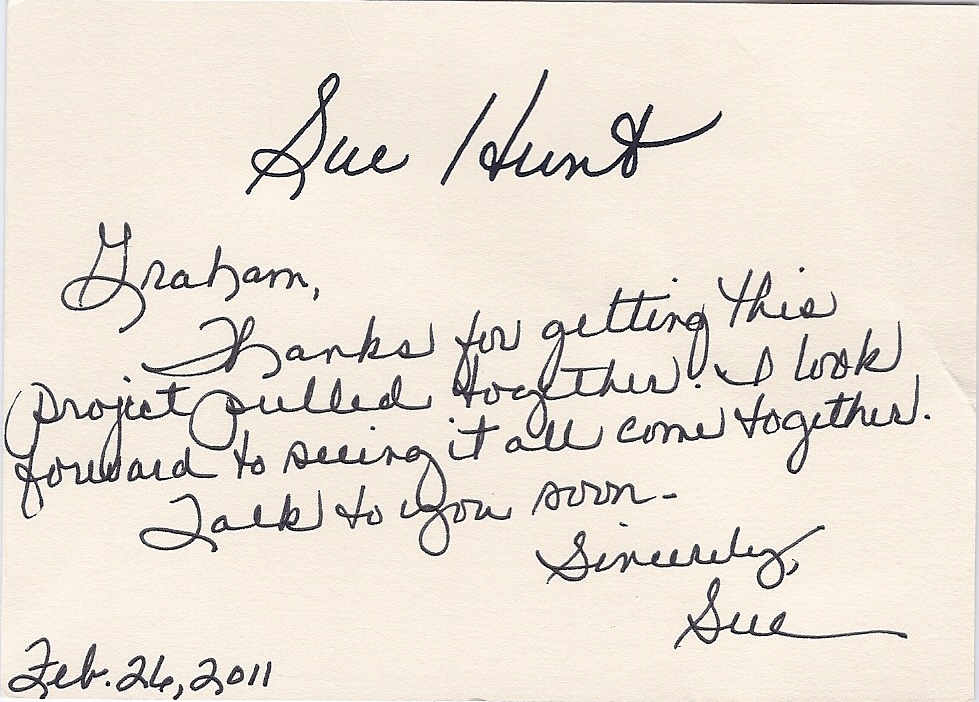 Sue Hunt
Graham,
Thanks for getting this
project pulled together. I look
forward to seeing it all come together.
Talk to you soon-
Sincerely,
Sue
Feb. 26, 2011